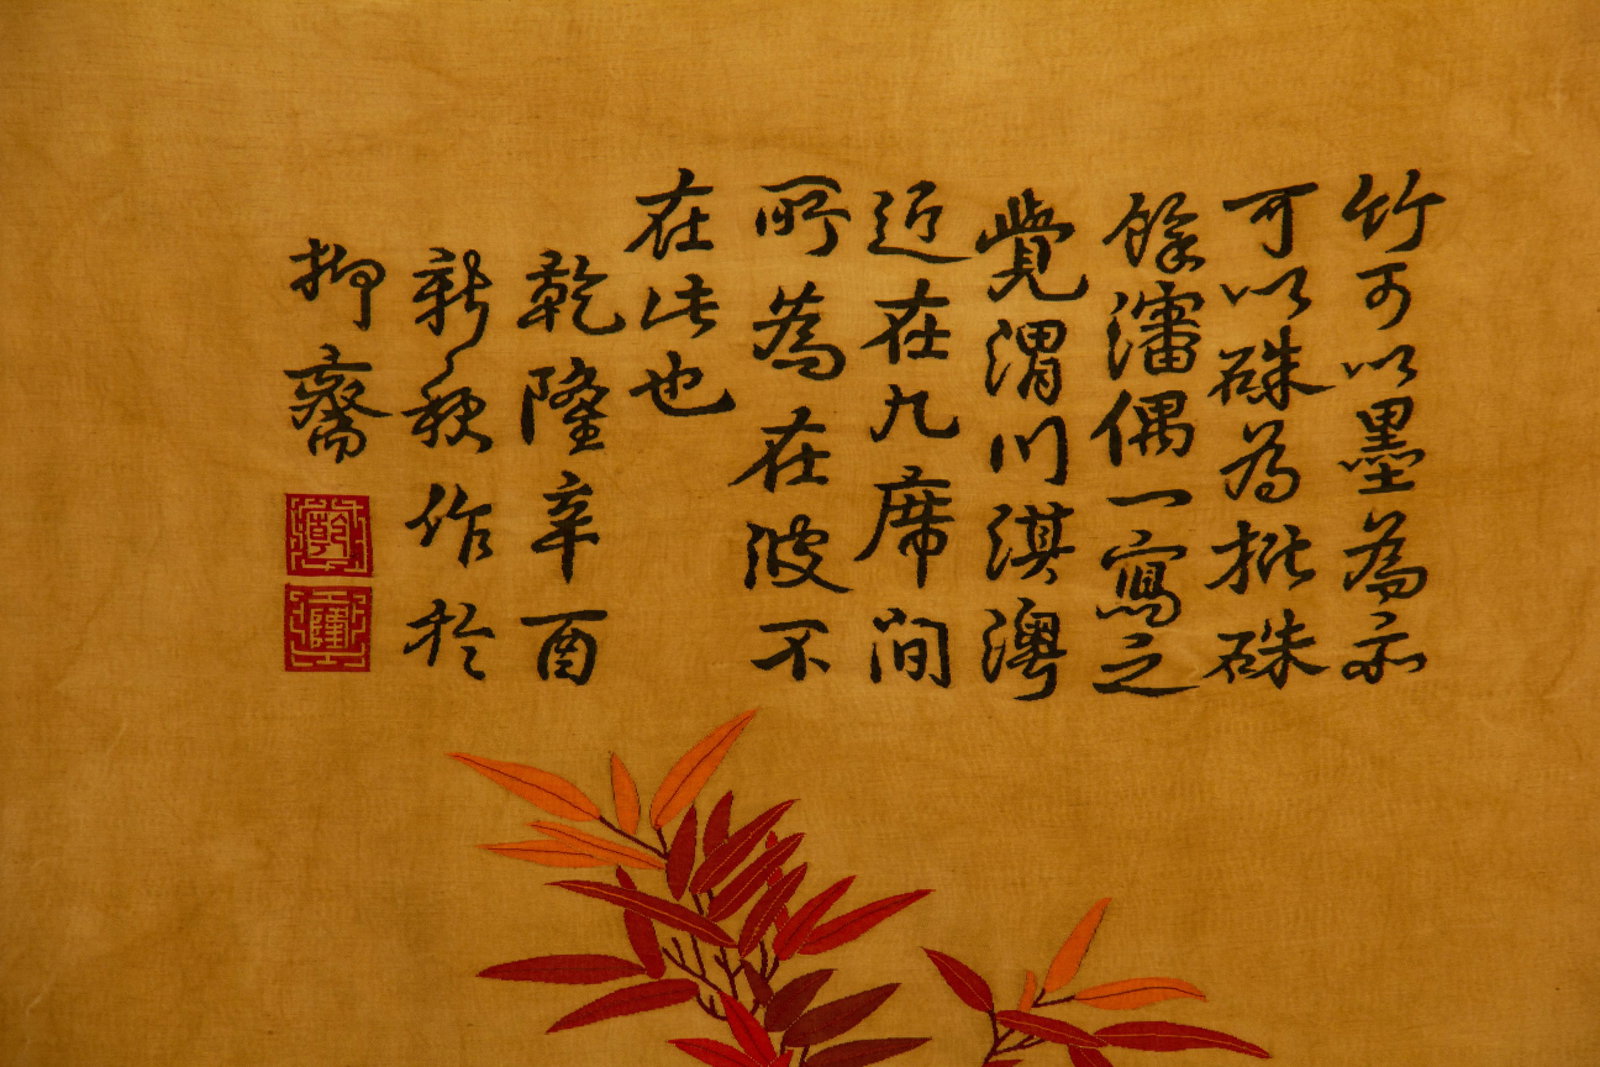 竹可以墨為亦
可以硃為批硃
餘瀋偶一寫之
覺渭川淇澳
近在九席間
所為在彼不
在此也
乾隆辛酉
新秋作於
抑齋
乾
隆